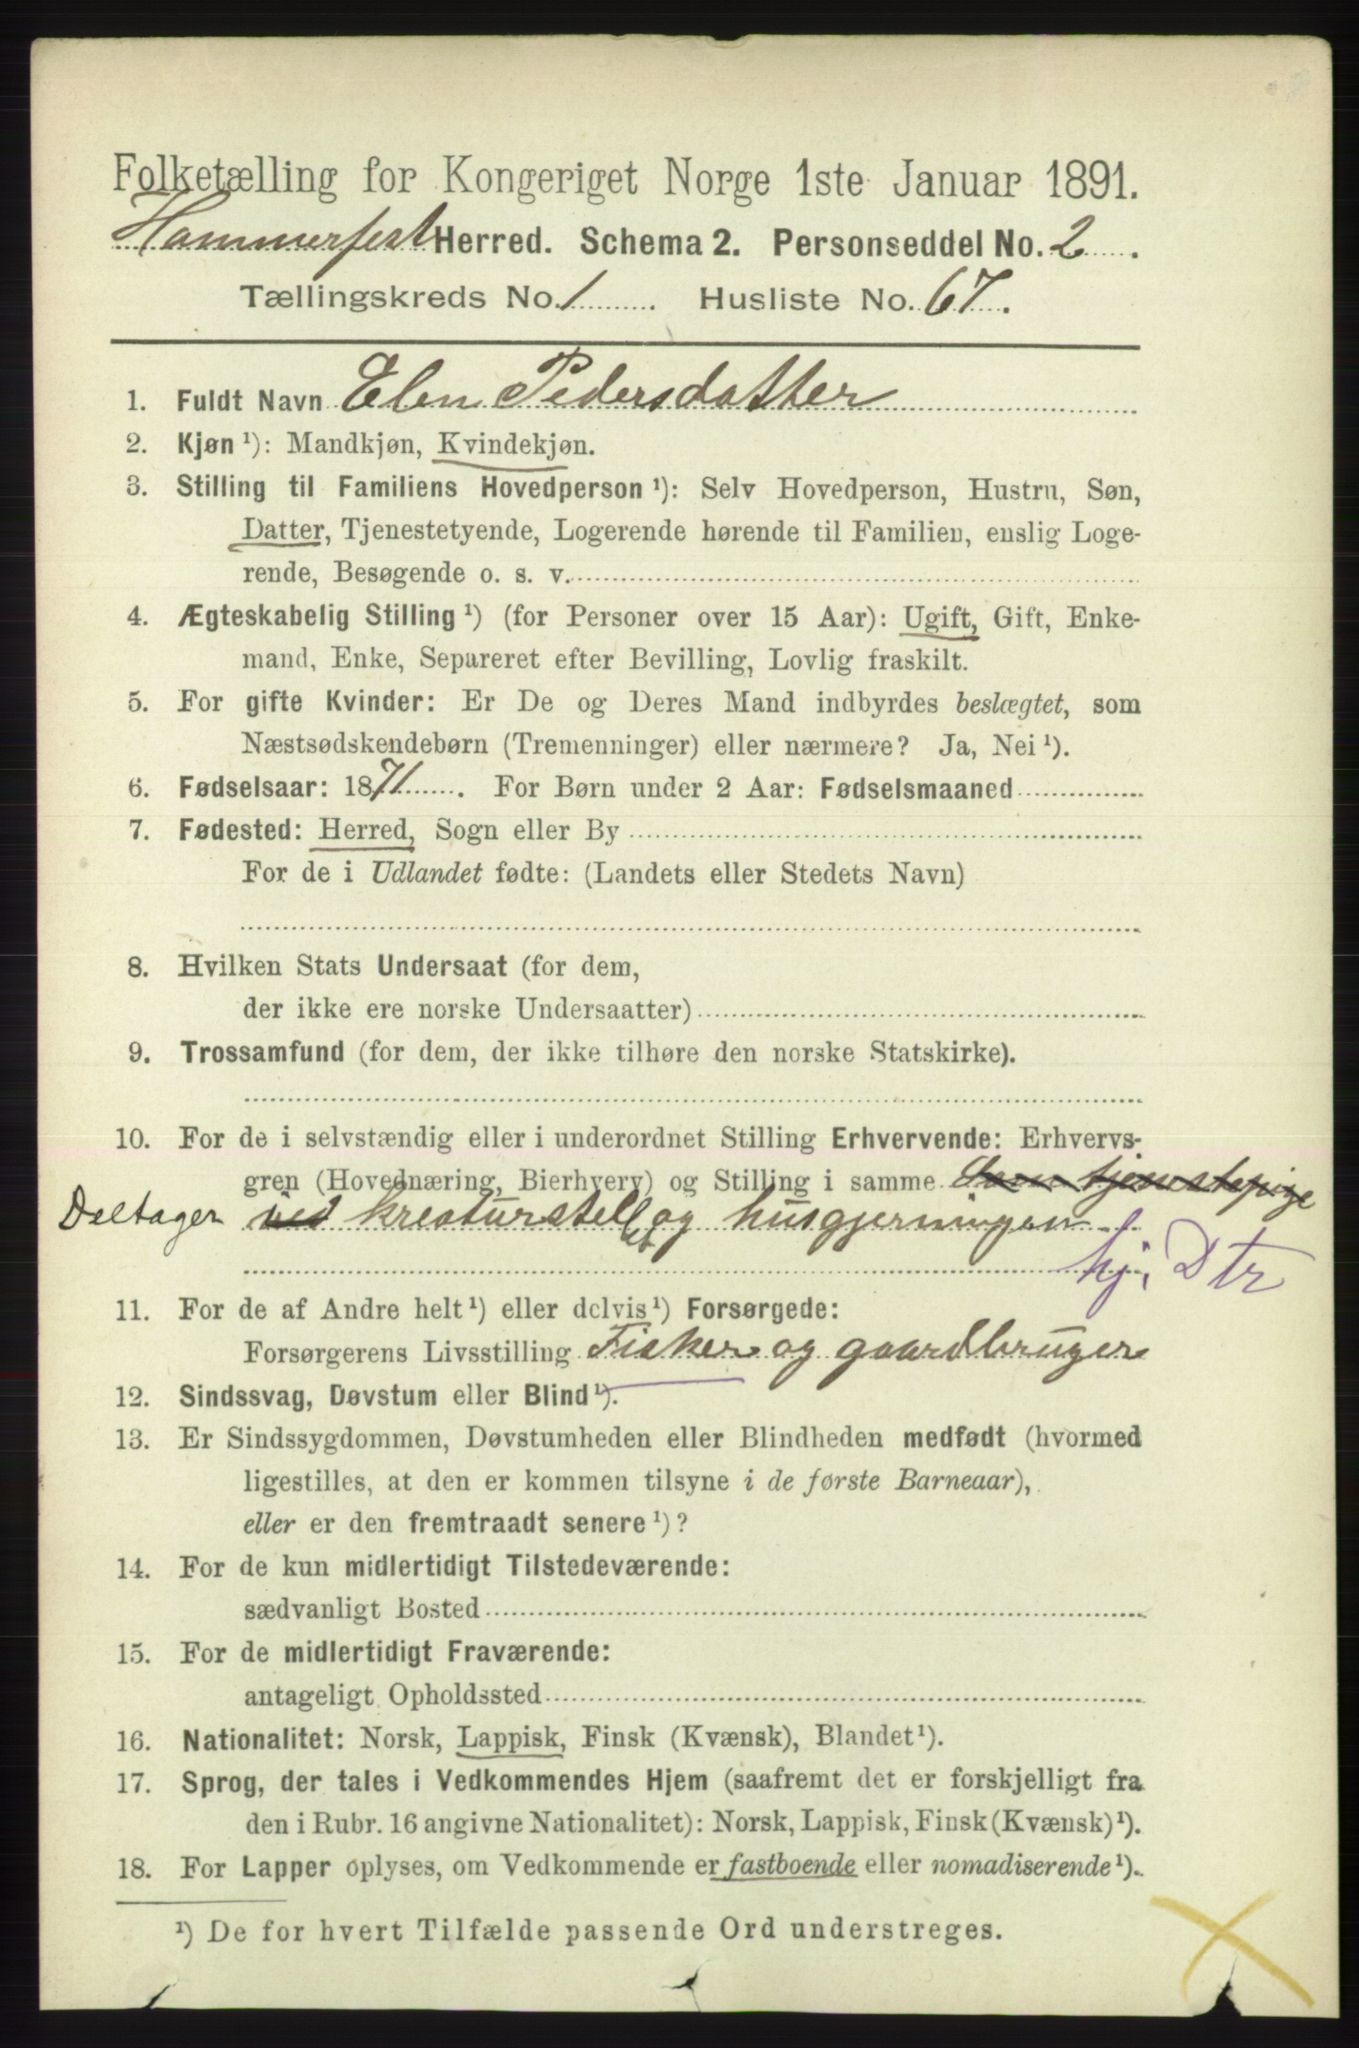 Folketælling for Kongeriget Norge 1ste Januar 1891.
Hammerfest Herred. Schema 2. Personseddel No. 2.
Tællingskreds No. 1 Husliste No. 67.
1. Fuldt Navn Elen Pedersdatter
2. Kjøn ¹): Mandkjøn, Kvindekjøn.
3. Stilling til Familiens Hovedperson ¹): Selv Hovedperson, Hustru, Søn,
Datter, Tjenestetyende, Logerende hørende til Familien, enslig Loge-
rende, Besøgende o. s. v.
4. Ægteskabelig Stilling ¹) (for Personer over 15 Aar): Ugift, Gift, Enke-
mand, Enke, Separeret efter Bevilling, Lovlig fraskilt.
5. For gifte Kvinder: Er De og Deres Mand indbyrdes beslægtet, som
Næstsødskendebørn (Tremenninger) eller nærmere? Ja, Nei ¹).
6. Fødselsaar: 1871. For Børn under 2 Aar: Fødselsmaaned
7. Fødested: Herred, Sogn eller By
For de i Udlandet fødte: (Landets eller Stedets Navn)
8. Hvilken Stats Undersaat (for dem,
der ikke ere norske Undersaatter)
9. Trossamfund (for dem, der ikke tilhøre den norske Statskirke).
10. For de i selvstændig eller i underordnet Stilling Erhvervende: Erhvervs-
gren (Hovednæring, Bierhverv) og Stilling i samme Som tjenestepige
Deltager ved kreaturstell og husgjerningen
hj. Dtr
11. For de af Andre helt ¹) eller delvis ¹) Forsørgede:
Forsørgerens Livsstilling Fisker og gaardbruger
12. Sindssvag, Døvstum eller Blind ¹).
13. Er Sindssygdommen, Døvstumheden eller Blindheden medfødt (hvormed
ligestilles, at den er kommen tilsyne i de første Barneaar),
eller er den fremtraadt senere ¹)?
14. For de kun midlertidigt Tilstedeværende:
sædvanligt Bosted
15. For de midlertidigt Fraværende:
antageligt Opholdssted
16. Nationalitet: Norsk, Lappisk, Finsk (Kvænsk), Blandet ¹).
17. Sprog, der tales i Vedkommendes Hjem (saafremt det er forskjelligt fra
den i Rubr. 16 angivne Nationalitet): Norsk, Lappisk, Finsk (Kvænsk) ¹).
18. For Lapper oplyses, om Vedkommende er fastboende eller nomadiserende ¹).
¹) De for hvert Tilfælde passende Ord understreges.